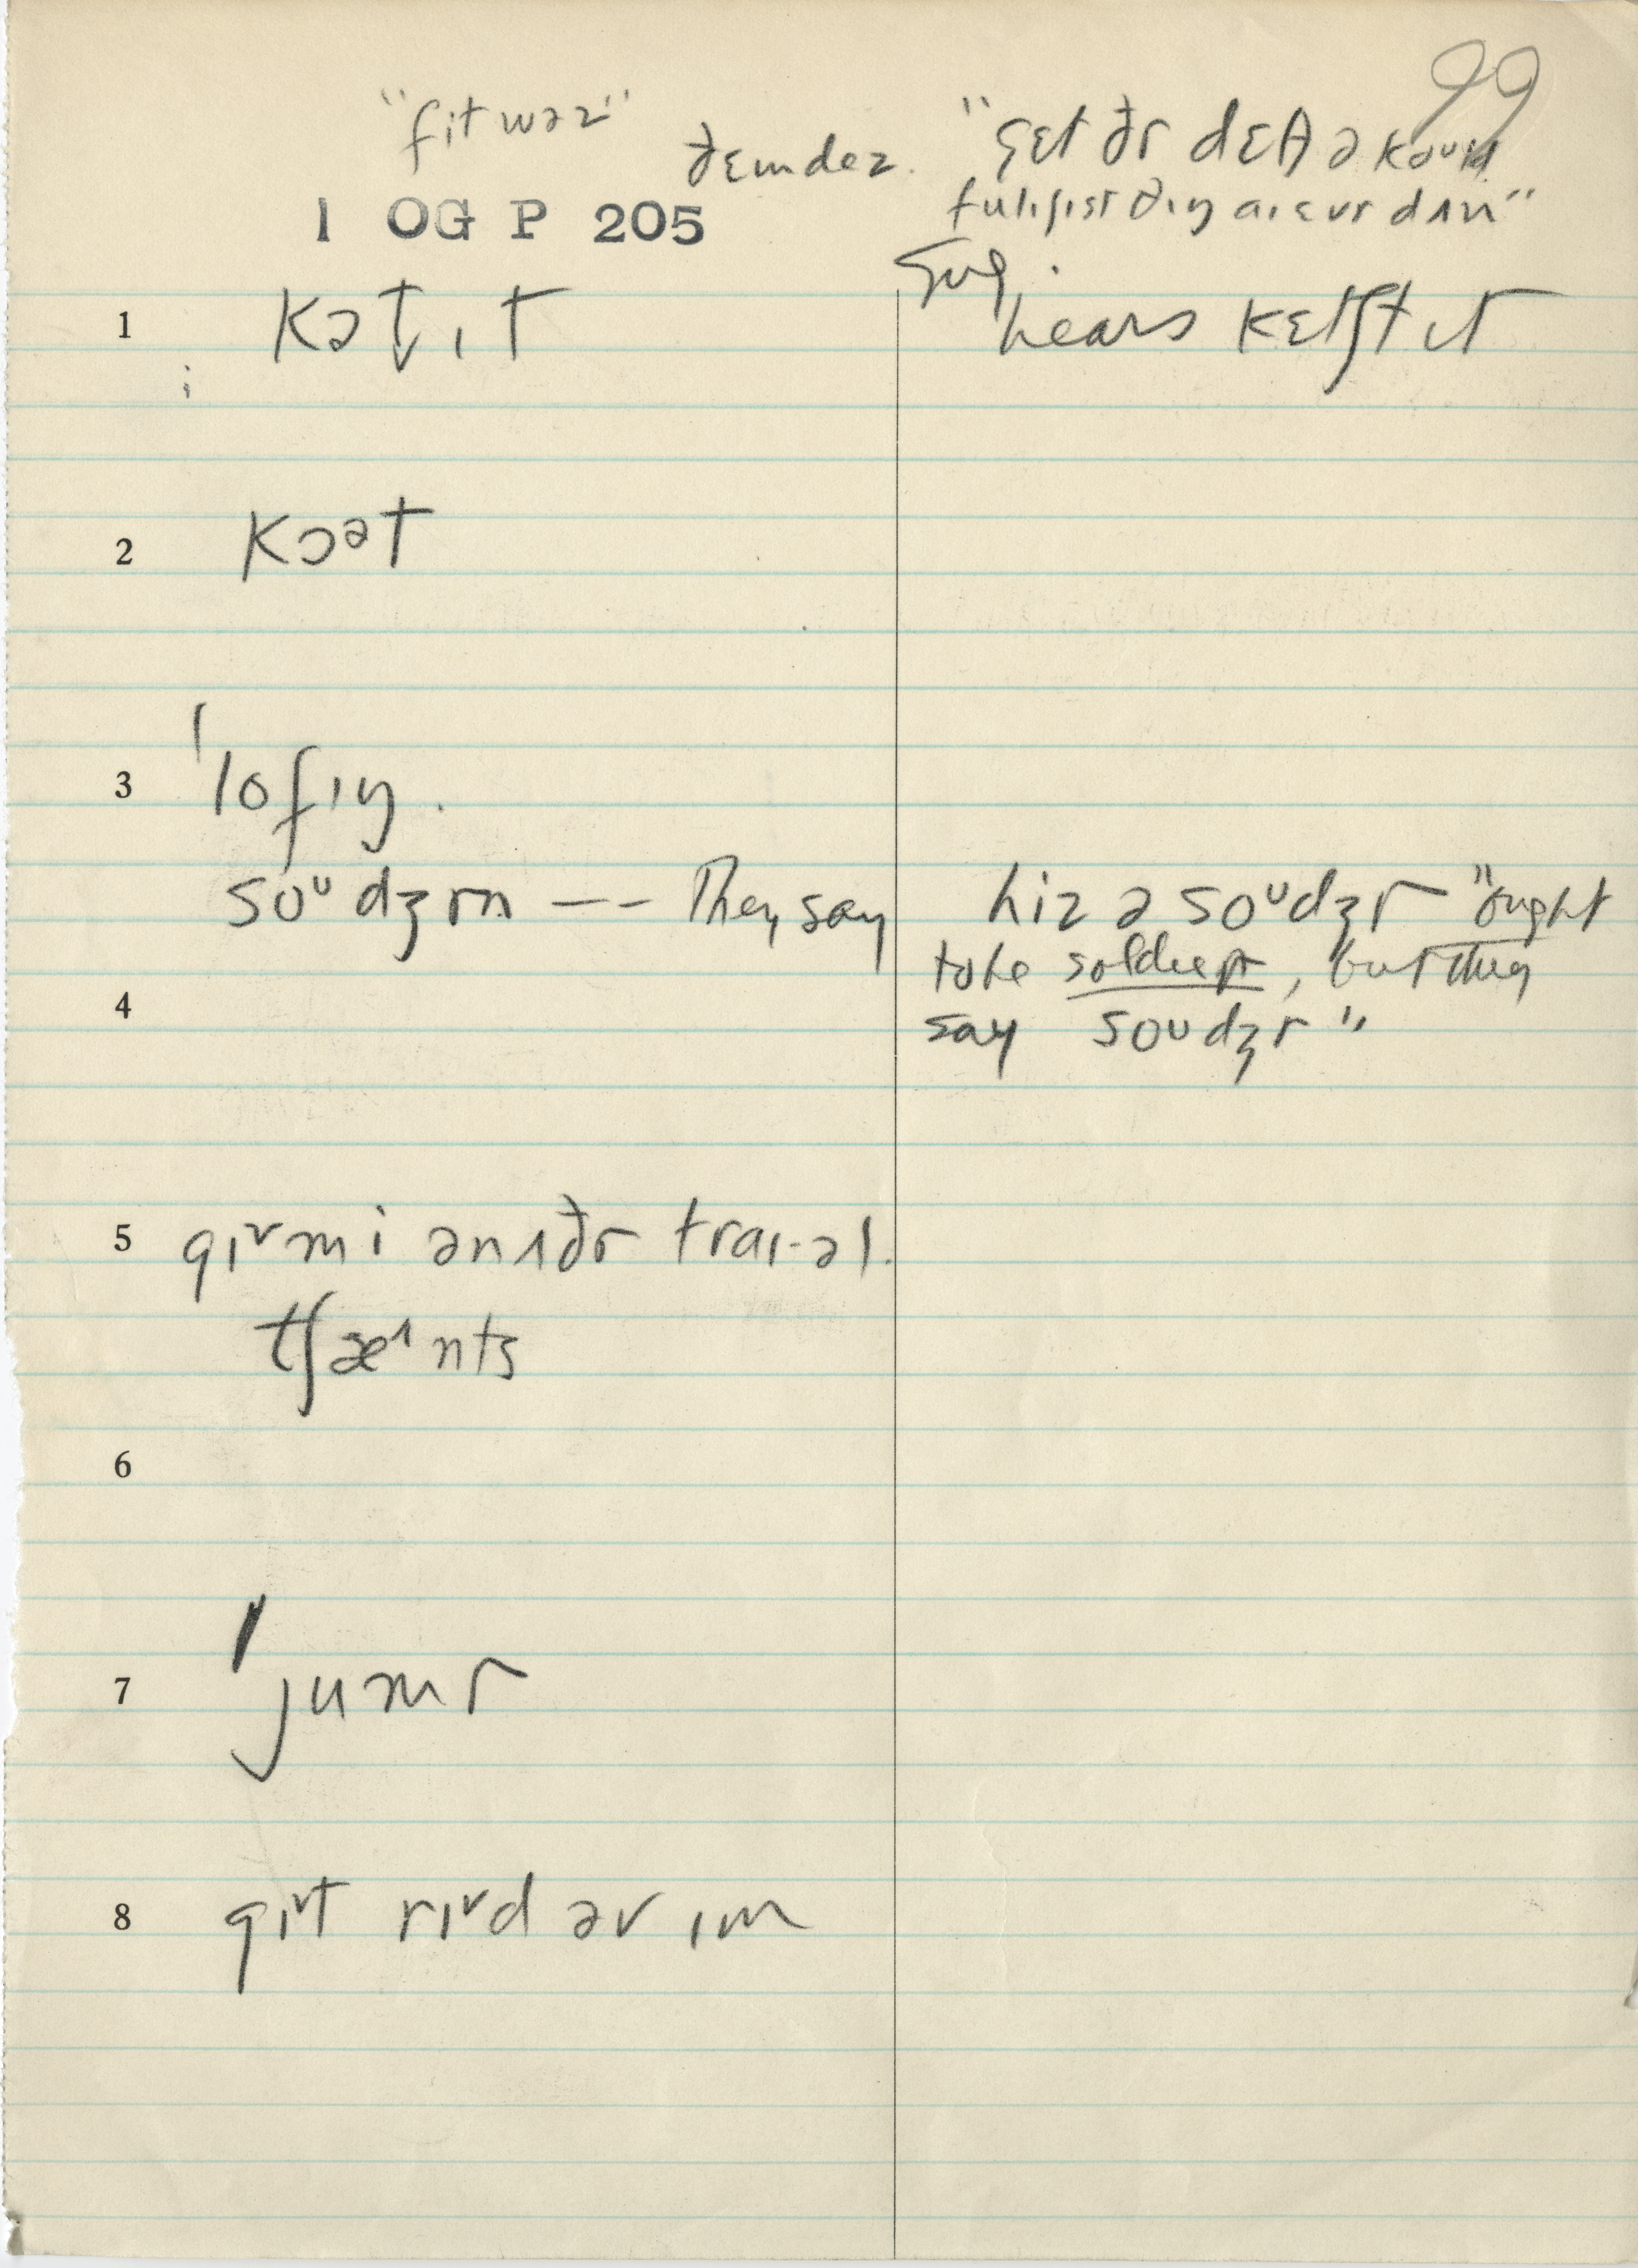 99
"fit wəz"
ðɛmdez.
"sɛt ðr dɛθ ə
fulɪʃɪst θɪŋ aɪ ɛvr dʌn"
1 OG P 205
sug.
1 kət̬ɪt
hears kɛtʃt ɪt
2 kɔət
3 ˈlɒfɪŋ.
soᵘdʒrn -- They say hiz ə soᵘdʒr "ought
to be soldier, but they
4
say soudʒr"
5 gɪᵛmi ənʌðr traɪ-əl.
tʃæᶦnts
6
7 ˈjumr
8 gɪᵛt rɪᵛd əv ɪm